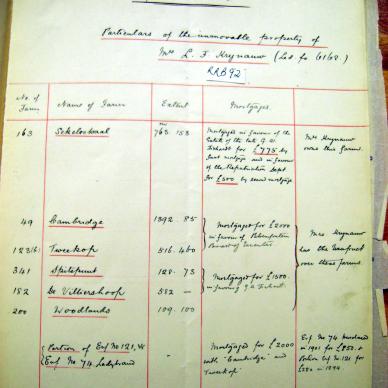 Particulars of the immovable property of
Mrs L. F. Krynauw (Lab. fo 6168.)
RRB92
No. of Farm
Name of Farm
Extent
Mortgages
163
763 153
Mortgaged in favour of the
Estate of the late G. A.
Fichardt for £775 by
first mortgage and in favour
of the Repatriation Dept
for £500 by second mortgage
Mrs Krynauw
owns this farm.
49 Cambridge 1392. 85
Mortgaged for £2000
in favour of Repatriation
Board of Executors
123(b) Tweekop 516. 460
341 Spitspunt 128. 73
Mortgaged for £1500.
in favour of G A Fichardt.
182 De Villiershoop 582 —
200 Woodlands 109. 100
Mrs Krynauw
has the usufruct
over these farms.
Portion of Erf No 121, &
Erf No. 74 Ladybrand
-
Mortgaged for £2000
with "Cambridge" and
Tweekop"
Erf No 74 purchased
in 1901 for £850. &
Portion Erf No. 121 for
in 1894